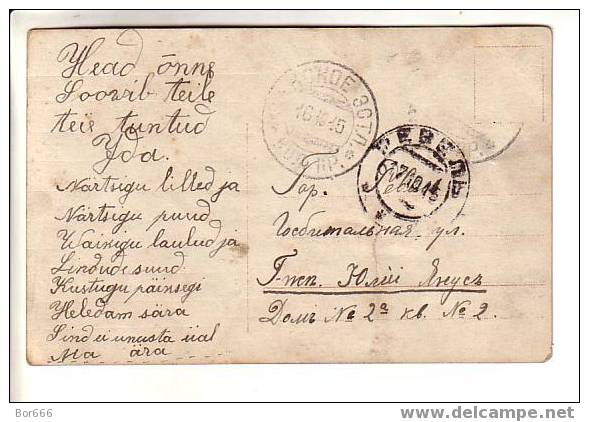 Head õnne
Soovib teile
teie tuntud
Yda.
Närtsigu lilled ja
Närtsigu puud
Waikigu laulud ja
Linnude suud
Kustugu päinsegi
Heledam sära
Sind ei unusta iial
Ma ära
16
15
РЕВЕЛЬ
15
Гор. Реве
Госпитальная ул.
Г-жѣ. Юлій Янусъ
Домъ № 2а кв. № 2.
Bor666
www.delcampe.net